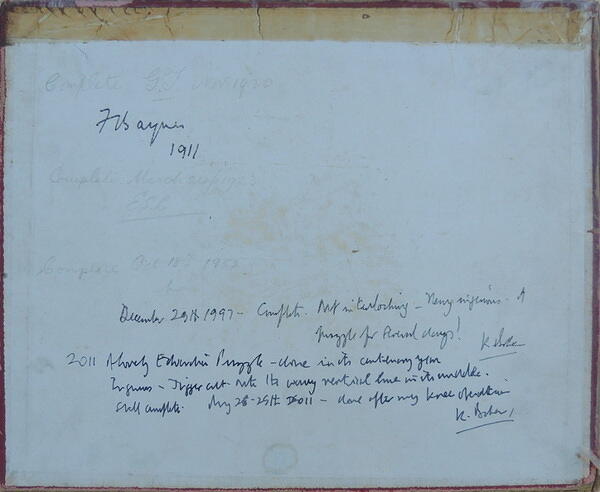 Complete G.J. Nov 1920
F Bayner
1911
Complete March 1923
Complete Oct 18th 1952
December 29th 1997 - Complete. Not interlocking - Very ingenious. A
puzzle for several days! K
2011 A lovely Edwardian Puzzle - done in its centenary year
Ingenious - Jigger cut - note its wavy vertical line in its middle.
Still complete. May 28-29th 2011 - done after my knee operation
K.